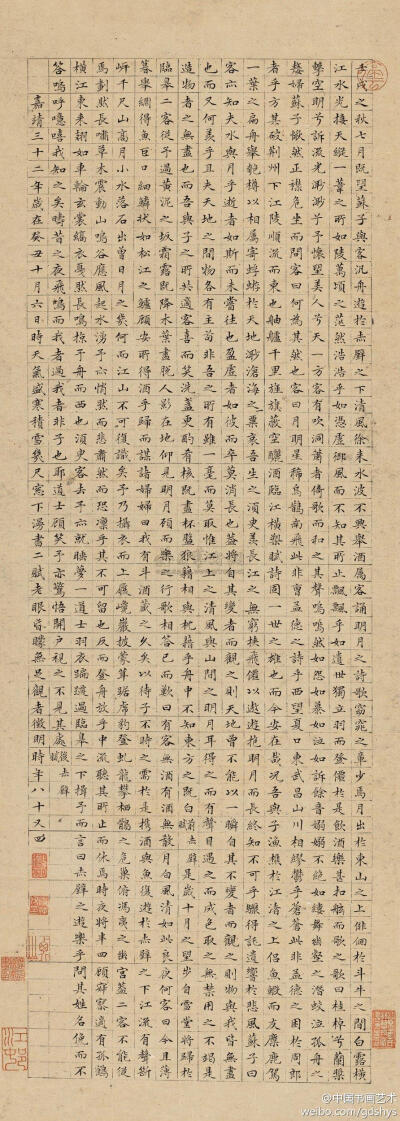 壬戌之秋七月既望蘇子與客汎舟遊於赤壁之下清風徐來水波不興舉酒屬客誦明月之詩歌窈窕之章少焉月出於東山之上徘徊於斗牛之間白露橫
江水光接天縱一葦之所如陵萬頃之茫然浩浩乎如憑虛御風而不知其所止飄飄乎如遺世獨立羽而登僊於是飲酒樂甚扣舷而歌之歌曰桂棹兮蘭槳
擊空明兮泝流光渺渺兮予懷望美人兮天一方客有吹洞簫者倚歌而和之其聲嗚嗚然如怨如慕如泣如訴餘音嫋嫋不絕如縷舞幽壑之潛蛟泣孤舟之
嫠婦蘇子愀然正襟危坐而問客曰何為其然也客曰月明星稀烏鵲南飛此非曹孟德之詩乎西望夏口東武昌山川相繆鬱乎蒼蒼此非孟德之困於周郎
者乎方其破荊州下江陵順流而東也舳艫千里旌旗蔽空釃酒臨江橫槊賦詩固一世之雄也而今安在哉況吾與子漁樵於江渚之上侶魚鰕而友麋鹿駕
一葉之扁舟舉匏樽以相屬寄蜉蝣於天地渺滄海之粟哀吾生之須臾羨長江之無窮挾飛僊以遨遊抱明月而長終知不可乎驟得託遺響於悲風蘇子曰
客亦知夫水與月乎逝者如斯而未嘗往也盈虛者如彼而卒莫消長也蓋將自其變者而觀之則天地曾不能以一瞬自其不變者而觀之則物與我皆無盡
也而又何羨乎且夫天地之間物各有主苟非吾之所有雖一毫而莫取惟江上之清風與山間之明月耳得之而有聲目遇之而成色取之無禁用之不竭是
造物者之無盡藏也而吾與子之所共適客喜而笑洗盞更酌肴核既盡杯盤狼藉相與枕藉乎舟中不知東方之既白 前赤壁賦 是歲十月之望步自雪堂將歸於
臨皋二客從予過黃泥之坂霜露既降木葉盡脫人影在地仰見明月顧而樂之行歌相答已而歎曰有客無酒有酒無殽月白風清如此良夜何客曰今且薄
暮舉網得魚巨口細鱗狀如松江之鱸顧安所得酒乎歸而謀諸婦婦曰我有斗酒藏之久矣以待子不時之需於是攜酒與魚復遊於赤壁之下江流有聲斷
岸千尺山高月小水落石出曾日月之幾何而江山不可復識矣予乃攝衣而上履巉巖披蒙茸踞虎豹登虬龍攀栖鶻之危巢俯馮夷之幽宮蓋二客不能從
焉劃然長嘯草木震動山鳴谷應風起水湧予亦悄然而悲肅然而恐凜乎其不可留也反而登舟放乎中流聽其所止而休焉時夜將半四顧寂寥適有孤鶴
橫江東來翅如車輪玄裳縞衣戛然長鳴掠予舟而西也須臾客去予亦就睡夢一道士羽衣蹁躚過臨皋之下揖予而言曰赤壁之遊樂乎問其姓名俛而不
答嗚呼噫嘻我知之矣疇昔之夜飛鳴而過我者非子也耶道士顧笑予亦驚悟開戶視之不見其處 後赤壁賦
嘉靖三十二年歲在癸丑十月六日時天氣盛寒積雪幾尺窓下漫書二賦老眼昏矇無足觀者徵明時年八十又四
@中国书画艺术
weibo.com/gdshys